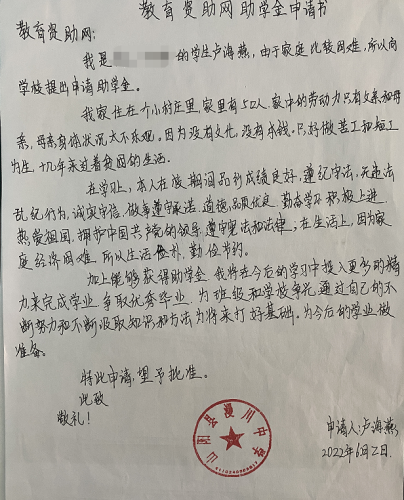 教育资助网助学金申请书
教育资助网:
我是 的学生卢海燕,由于家庭比较困难,所以向
学校提出申请助学金。
我家住在一个小村庄里,家里有5口人,家中的劳动力只有父亲和母
亲,母亲身体状况太不乐观。因为没有文化,没有本钱。只好做苦工和短工
为生,十几年来过着贫困的生活。
在学习上,本人在校期间品行成绩良好,遵纪守法,无违法
乱纪行为,诚实守信,做事遵守承诺,道德品质优良 勤奋学习 积极上进,
热爱祖国,拥护中国共产党的领导,遵守宪法和法律;在生活上,因为家
庭经济困难,所以生活俭朴,勤俭节约。
加上能够获得助学金 我将在今后的学习中投入更多的精
力来完成学业,争取优秀毕业,为班级和学校争光,通过自己的不
断努力和不断汲取知识和方法为将来打好基础。为今后的学业做
准备。
特此申请,望予批准。
此致
敬礼!
山阳县漫川中学
申请人:卢海燕
2022年6月2日.